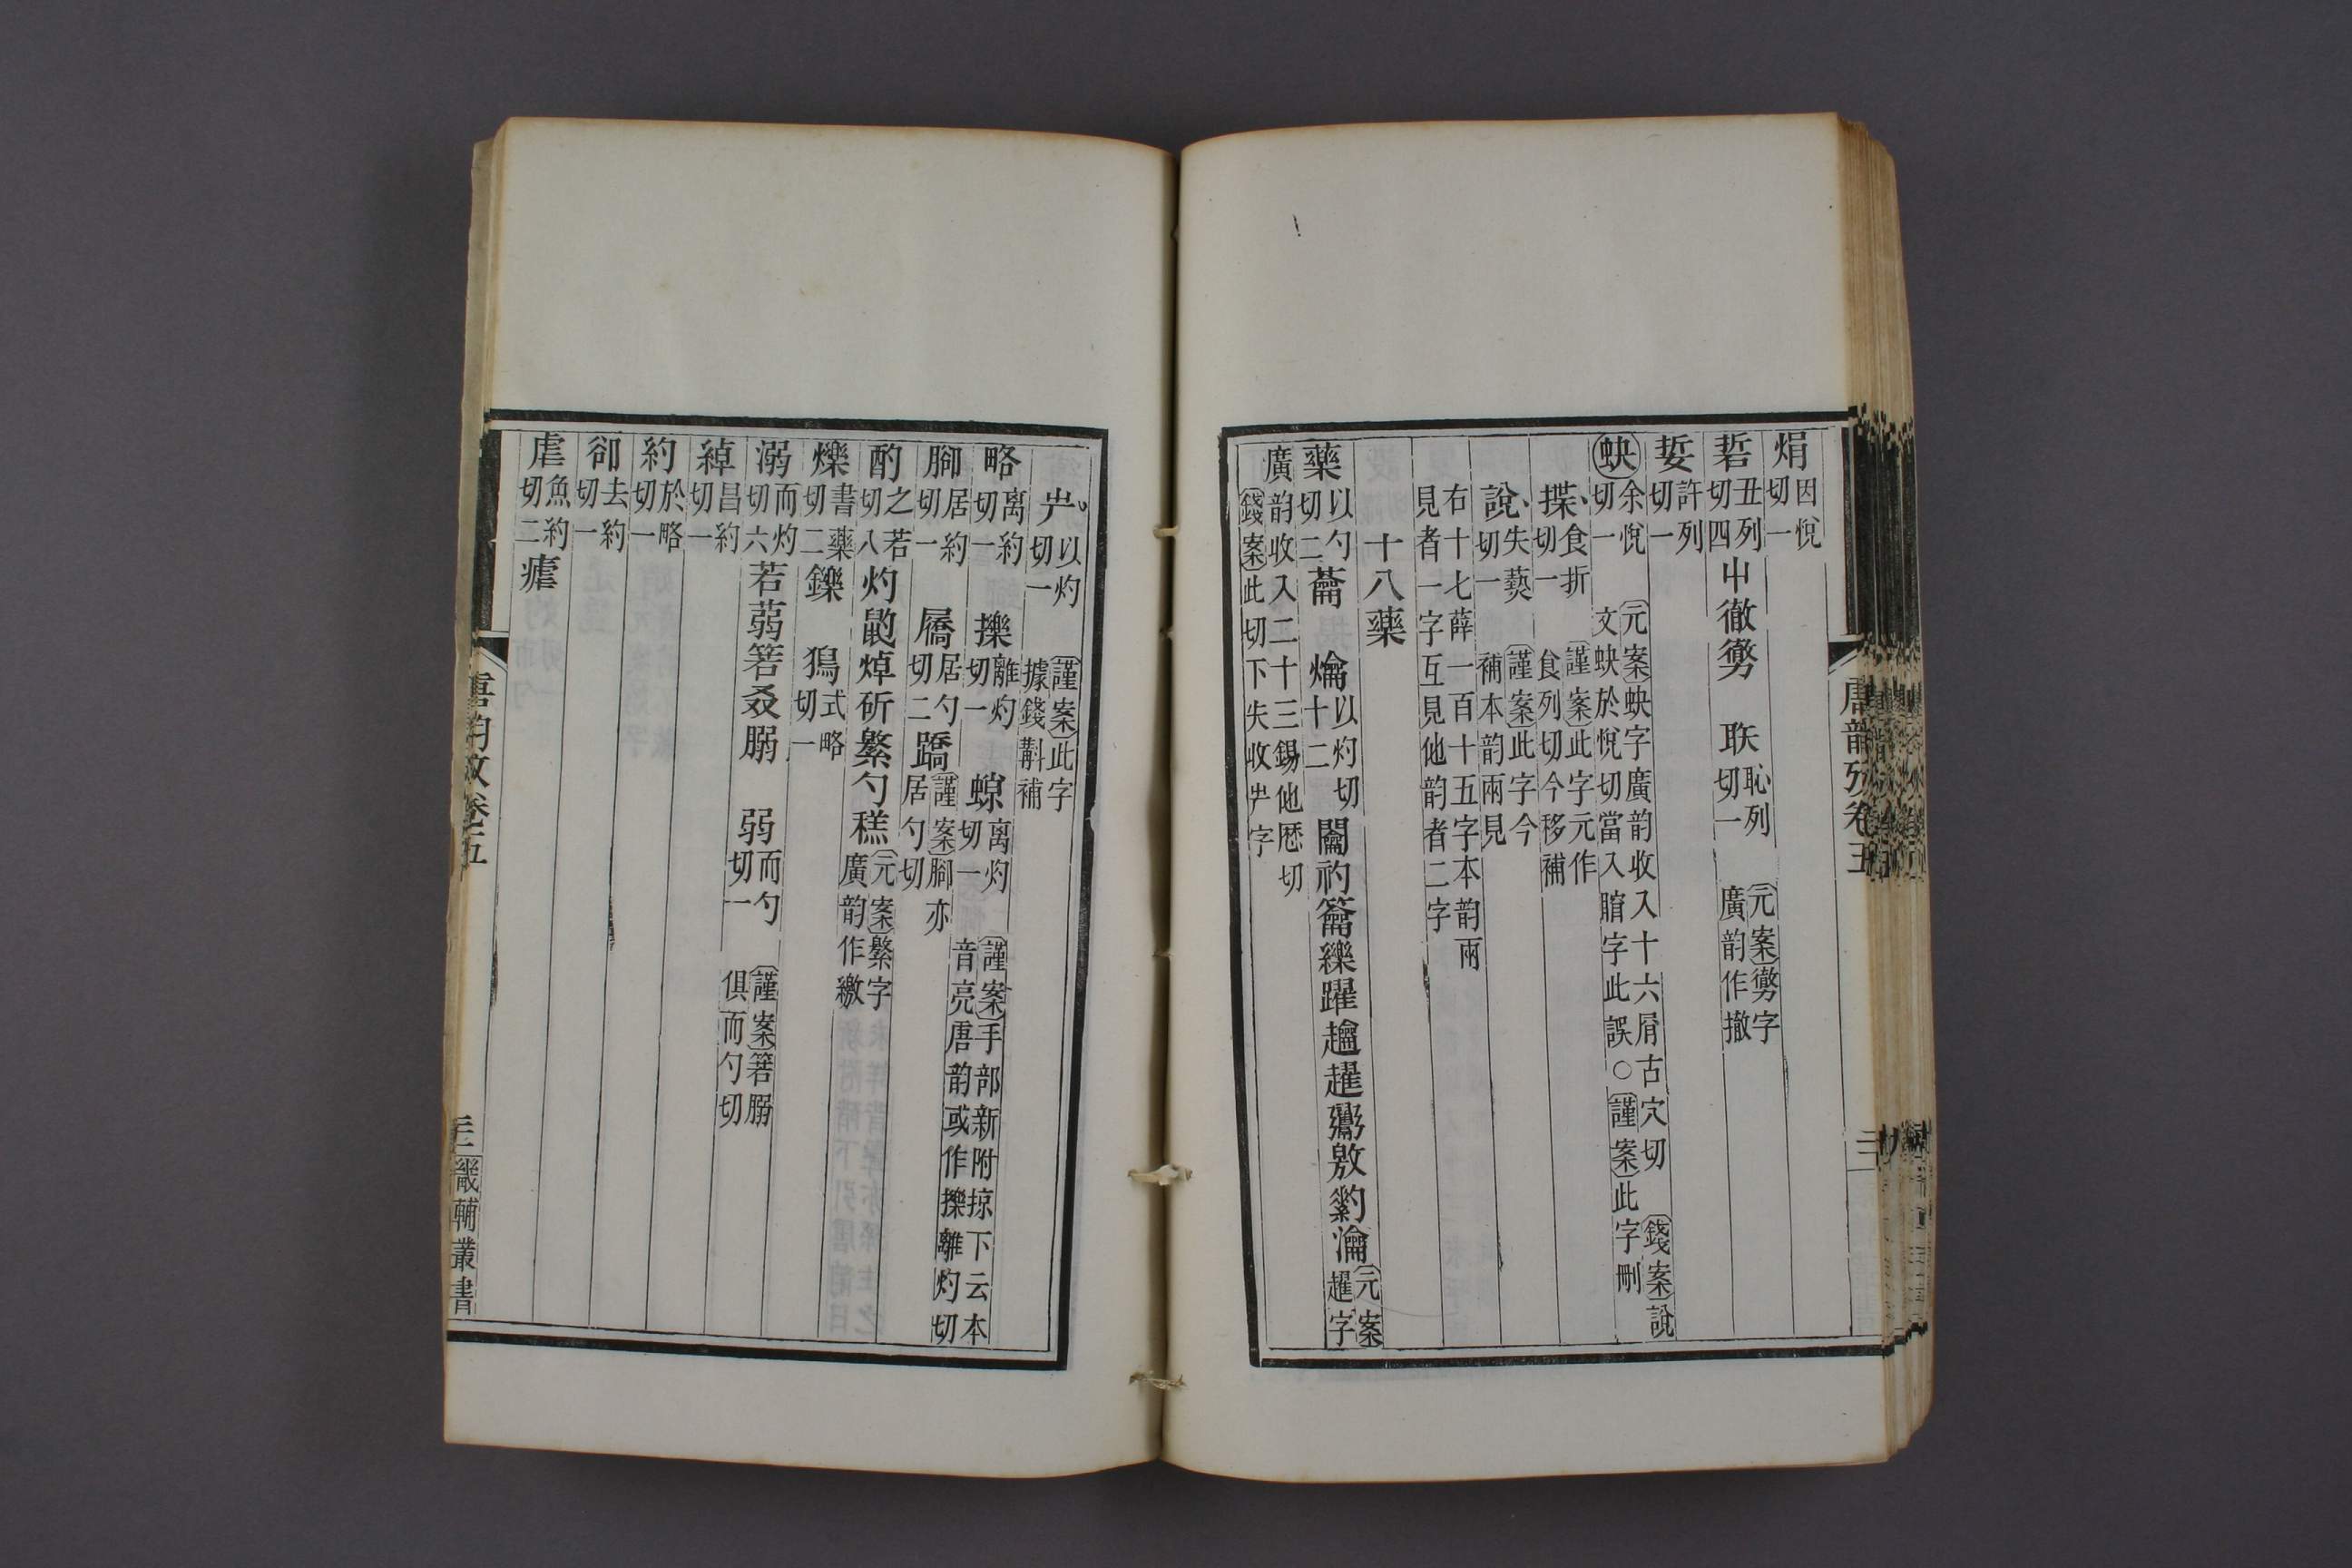 焆因悅切一
硩丑列切四屮徹㔃 聅恥列切一 元案㔃字廣韵作撤
娎許列切一
蚗余悅切一 元案蚗字廣韵收入十六屑古穴切 錢案說文蚗於悅切當入䏌字此誤○謹案此字刪
揲食折切一 謹案此字元作食列切今移補
說失爇切一 謹案此字今補本韵兩見
右十七薛一百十五字本韵兩見者一字互見他韵者二字
十八藥
藥以勺切二蘥 爚以灼切十二闟礿籥纅躍趯敫瀹元案趯字
廣韵收入二十三錫他歷切 錢案此切下失收字
以灼切一 謹案此字據錢斠補
略离約切一 擽離灼切一 䝶离灼切一 謹案手部新附掠下云本音亮唐韵或作擽離灼切
腳居約切一 屩居勺切二蹻 謹案腳亦居勺切
酌之若切八灼焯斫繁勺糕 元案繁字廣韵作繳
爍書藥切二鑠 獡式略切一
溺而灼切六若蒻箬叒䐞 弱而勺切一 謹案箬䐞俱而勺切
綽昌約切一
約於略切一
卻去約切一
虐魚約切二瘧
唐韵攷卷五
畿輔叢書